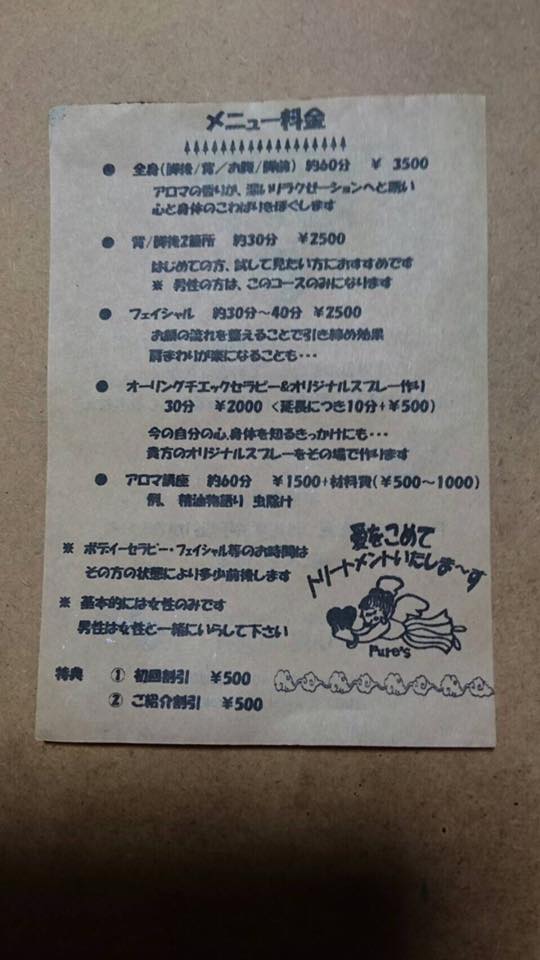 メニュー料金
● 全身(脚後/背/お腹/脚前) 約60分 ¥ 3500
アロマの香りが、深いリラクゼーションへと誘い
心と身体のこわばりをほぐします
● 背/脚後2箇所 約30分 ¥2500
はじめての方、試して見たい方におすすめです
※ 男性の方は、このコースのみになります
● フェイシャル 約30分~40分 ¥2500
お顔の流れを整えることで引き締め効果
肩まわりが楽になることも・・・
● オーリングチエックセラピー&オリジナルスプレー作り
30分 ¥2000 <延長につき10分+¥500)
今の自分の心、身体を知るきっかけにも・・・
貴方のオリジナルスプレーをその場で作ります
● アロマ講座 約60分 ¥1500+材料費(¥500~1000)
例、 精油物語り 虫除け
※ ボディーセラピー・フェイシャル等のお時間は
その方の状態により多少前後します
※ 基本的には女性のみです
男性は女性と一緒にいらして下さい
愛をこめて
トリートメントいたしま~す
Pure's
特典 ① 初回割引 ¥500
② ご紹介割引 ¥500